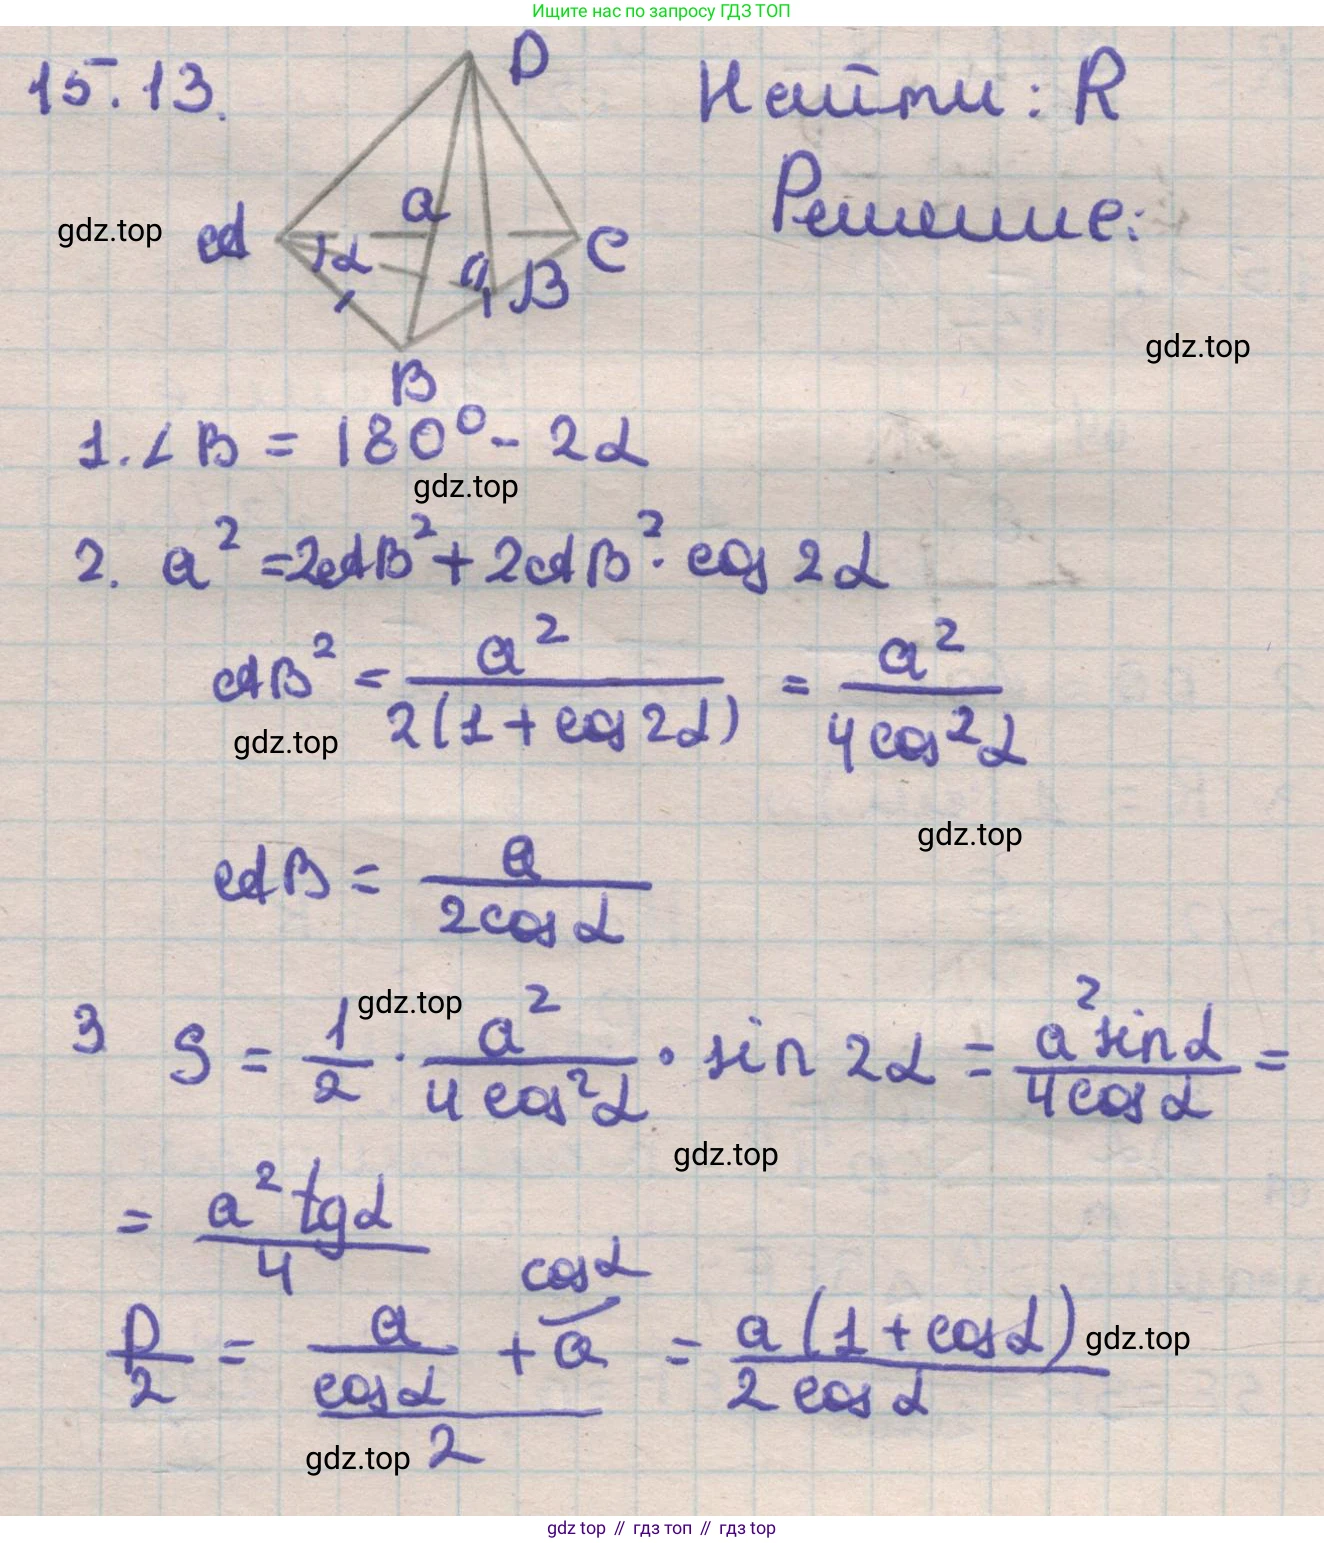 Ищите нас по запросу ГДЗ ТОП
15.13.
D
Найти: R
Решение:
gdz.top
A
a
α
C
β
B
gdz.top
1. ∠B = 180° - 2α
gdz.top
2. a² = 2AB² + 2AB² · cos 2α
AB² = a² / 2(1 + cos 2α) = a² / 4cos²α
gdz.top
gdz.top
AB = a / 2cos α
gdz.top
3 S = 1/2 · a² / 4cos²α · sin 2α = a² sin α / 4cos α =
gdz.top
= a² tg α / 4
P/2 = (a / cos α + a^(cos α)) / 2 = a(1 + cos α) / 2cos α
gdz.top
gdz.top
gdz top // гдз топ // gdz top